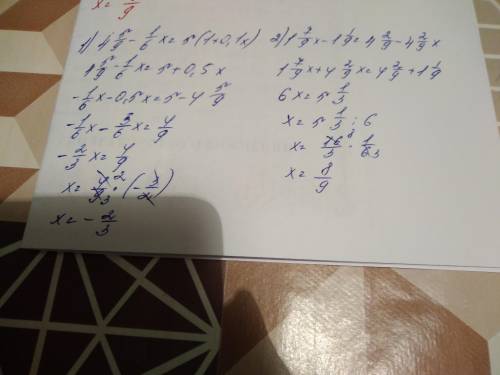 x = 7/9
1) 4 5/9 - 1/6 x = 5(1+0,1x)
4 5/9 - 1/6 x = 5+0,5x
-1/6 x - 0,5x = 5 - 4 5/9
-1/6 x - 3/6 x = 4/9
-2/3 x = 4/9
x = 4/9 · (-3/2)
x = - 2/3
2) 1 7/9 x - 1 1/9 = 4 2/9 - 4 2/9 x
1 7/9 x + 4 2/9 x = 4 2/9 + 1 1/9
6x = 5 1/3
x = 5 1/3 : 6
x = 16/3 · 1/6
x = 8/9